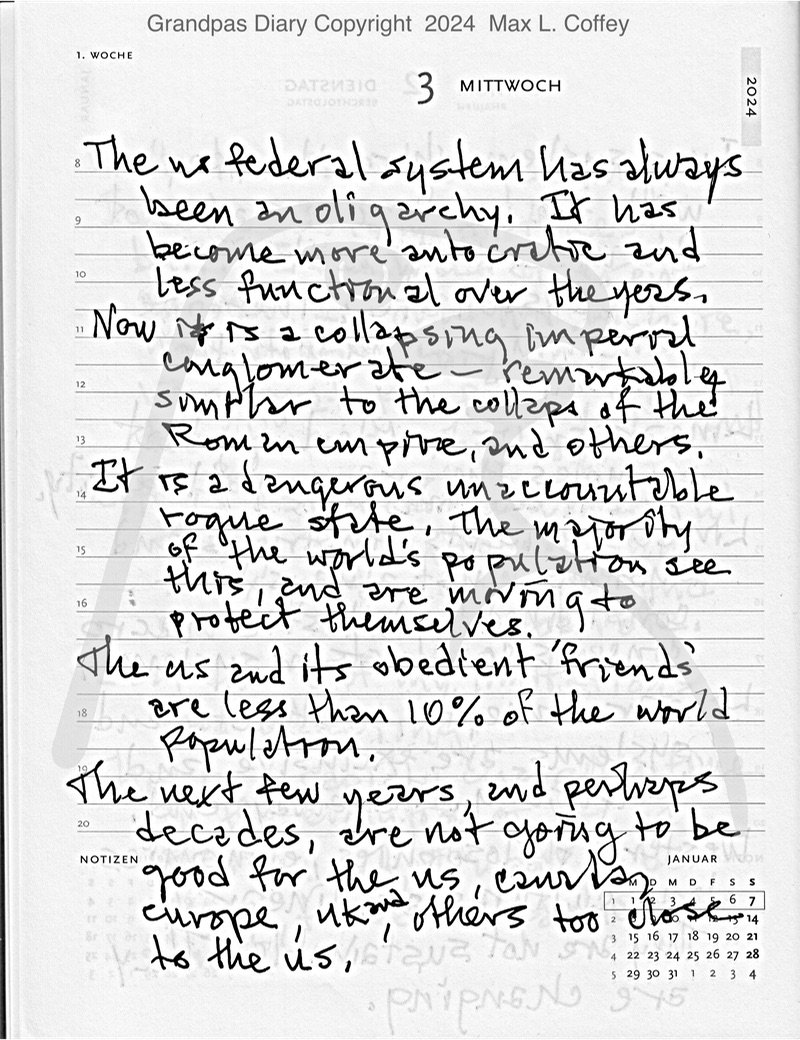 Grandpas Diary Copyright 2024 Max L. Coffey
1. WOCHE
3 MITTWOCH
2024
8 The us federal system has always
been an oligarchy. It has
9
become more autocratic and
10
less functional over the years.
11 Now it is a collapsing imperial
conglomerate – remarkably
12
similar to the collaps of the
13
Roman empire, and others.
14 It is a dangerous unaccountable
rogue state. The majority
15 of the world's population see
this, and are moving to
16
protect themselves.
The us and its obedient 'friends'
18 are less than 10% of the world
population.
19
The next few years, and perhaps
20 decades, are not going to be
NOTIZEN
JANUAR
good for the us,
europe, uk and, others too close
to the us.
M D M D F S S
1 1 2 3 4 5 6 7
2 14
3 15 16 17 18 19 20 21
4 22 23 24 25 26 27 28
5 29 30 31 1 2 3 4